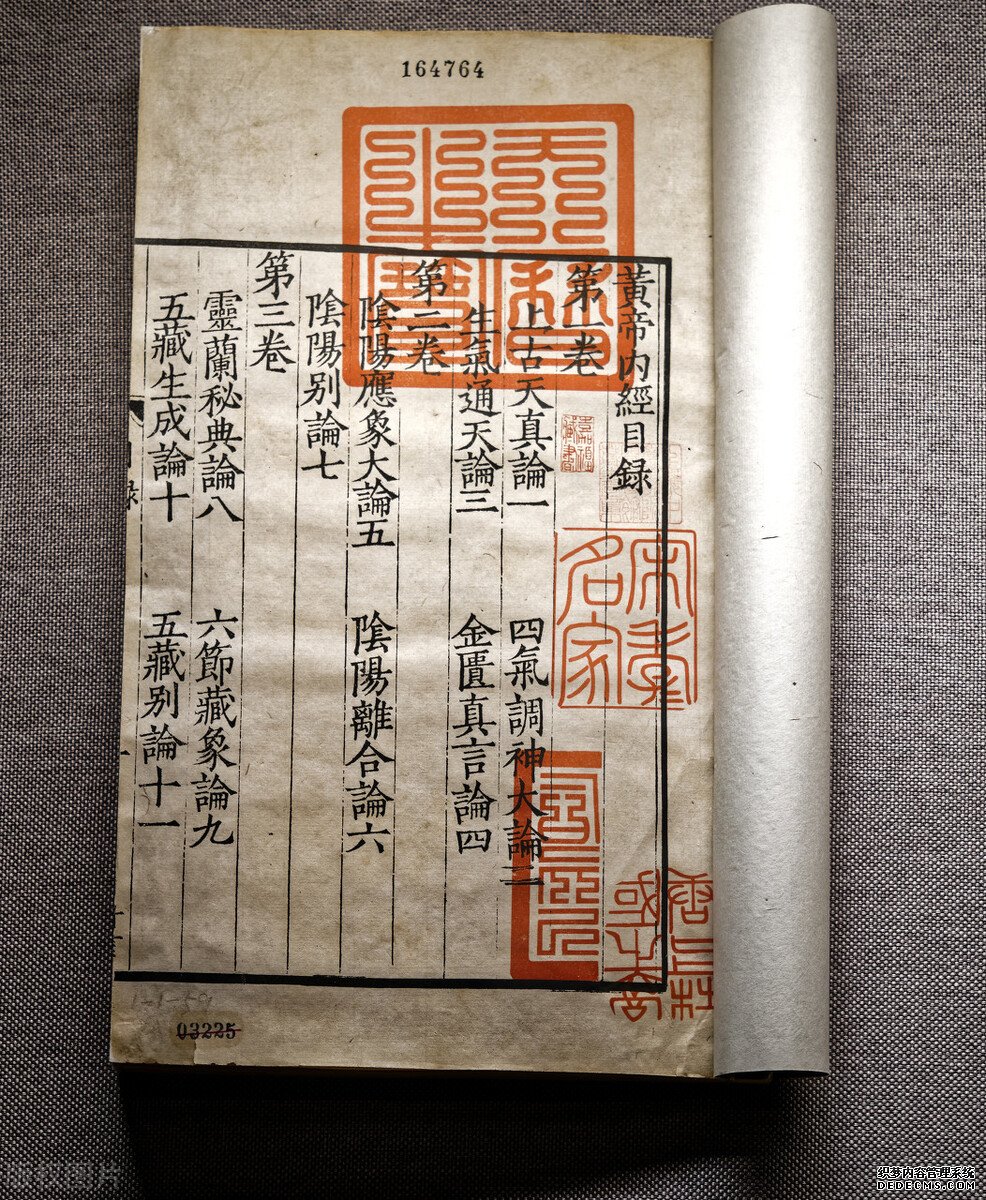 164764
黃帝内經目録
第一卷
上古天真論一
四氣調神大論二
生氣通天論三
金匱真言論四
第二卷
陰陽應象大論五
陰陽離合論六
陰陽别論七
第三卷
靈蘭秘典論八
六節藏象論九
五藏生成論十
五藏别論十一
録
名家
03225
版权图片
织梦内容管理系统
DEDECMS.COM